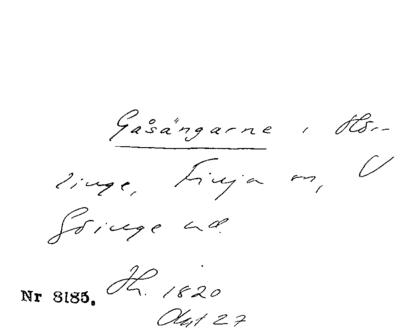 Gåsängarne i Hör-
linge, Finja sn, V
Göinge hd.
Nr 8185. Jh. 1820
Akt 27